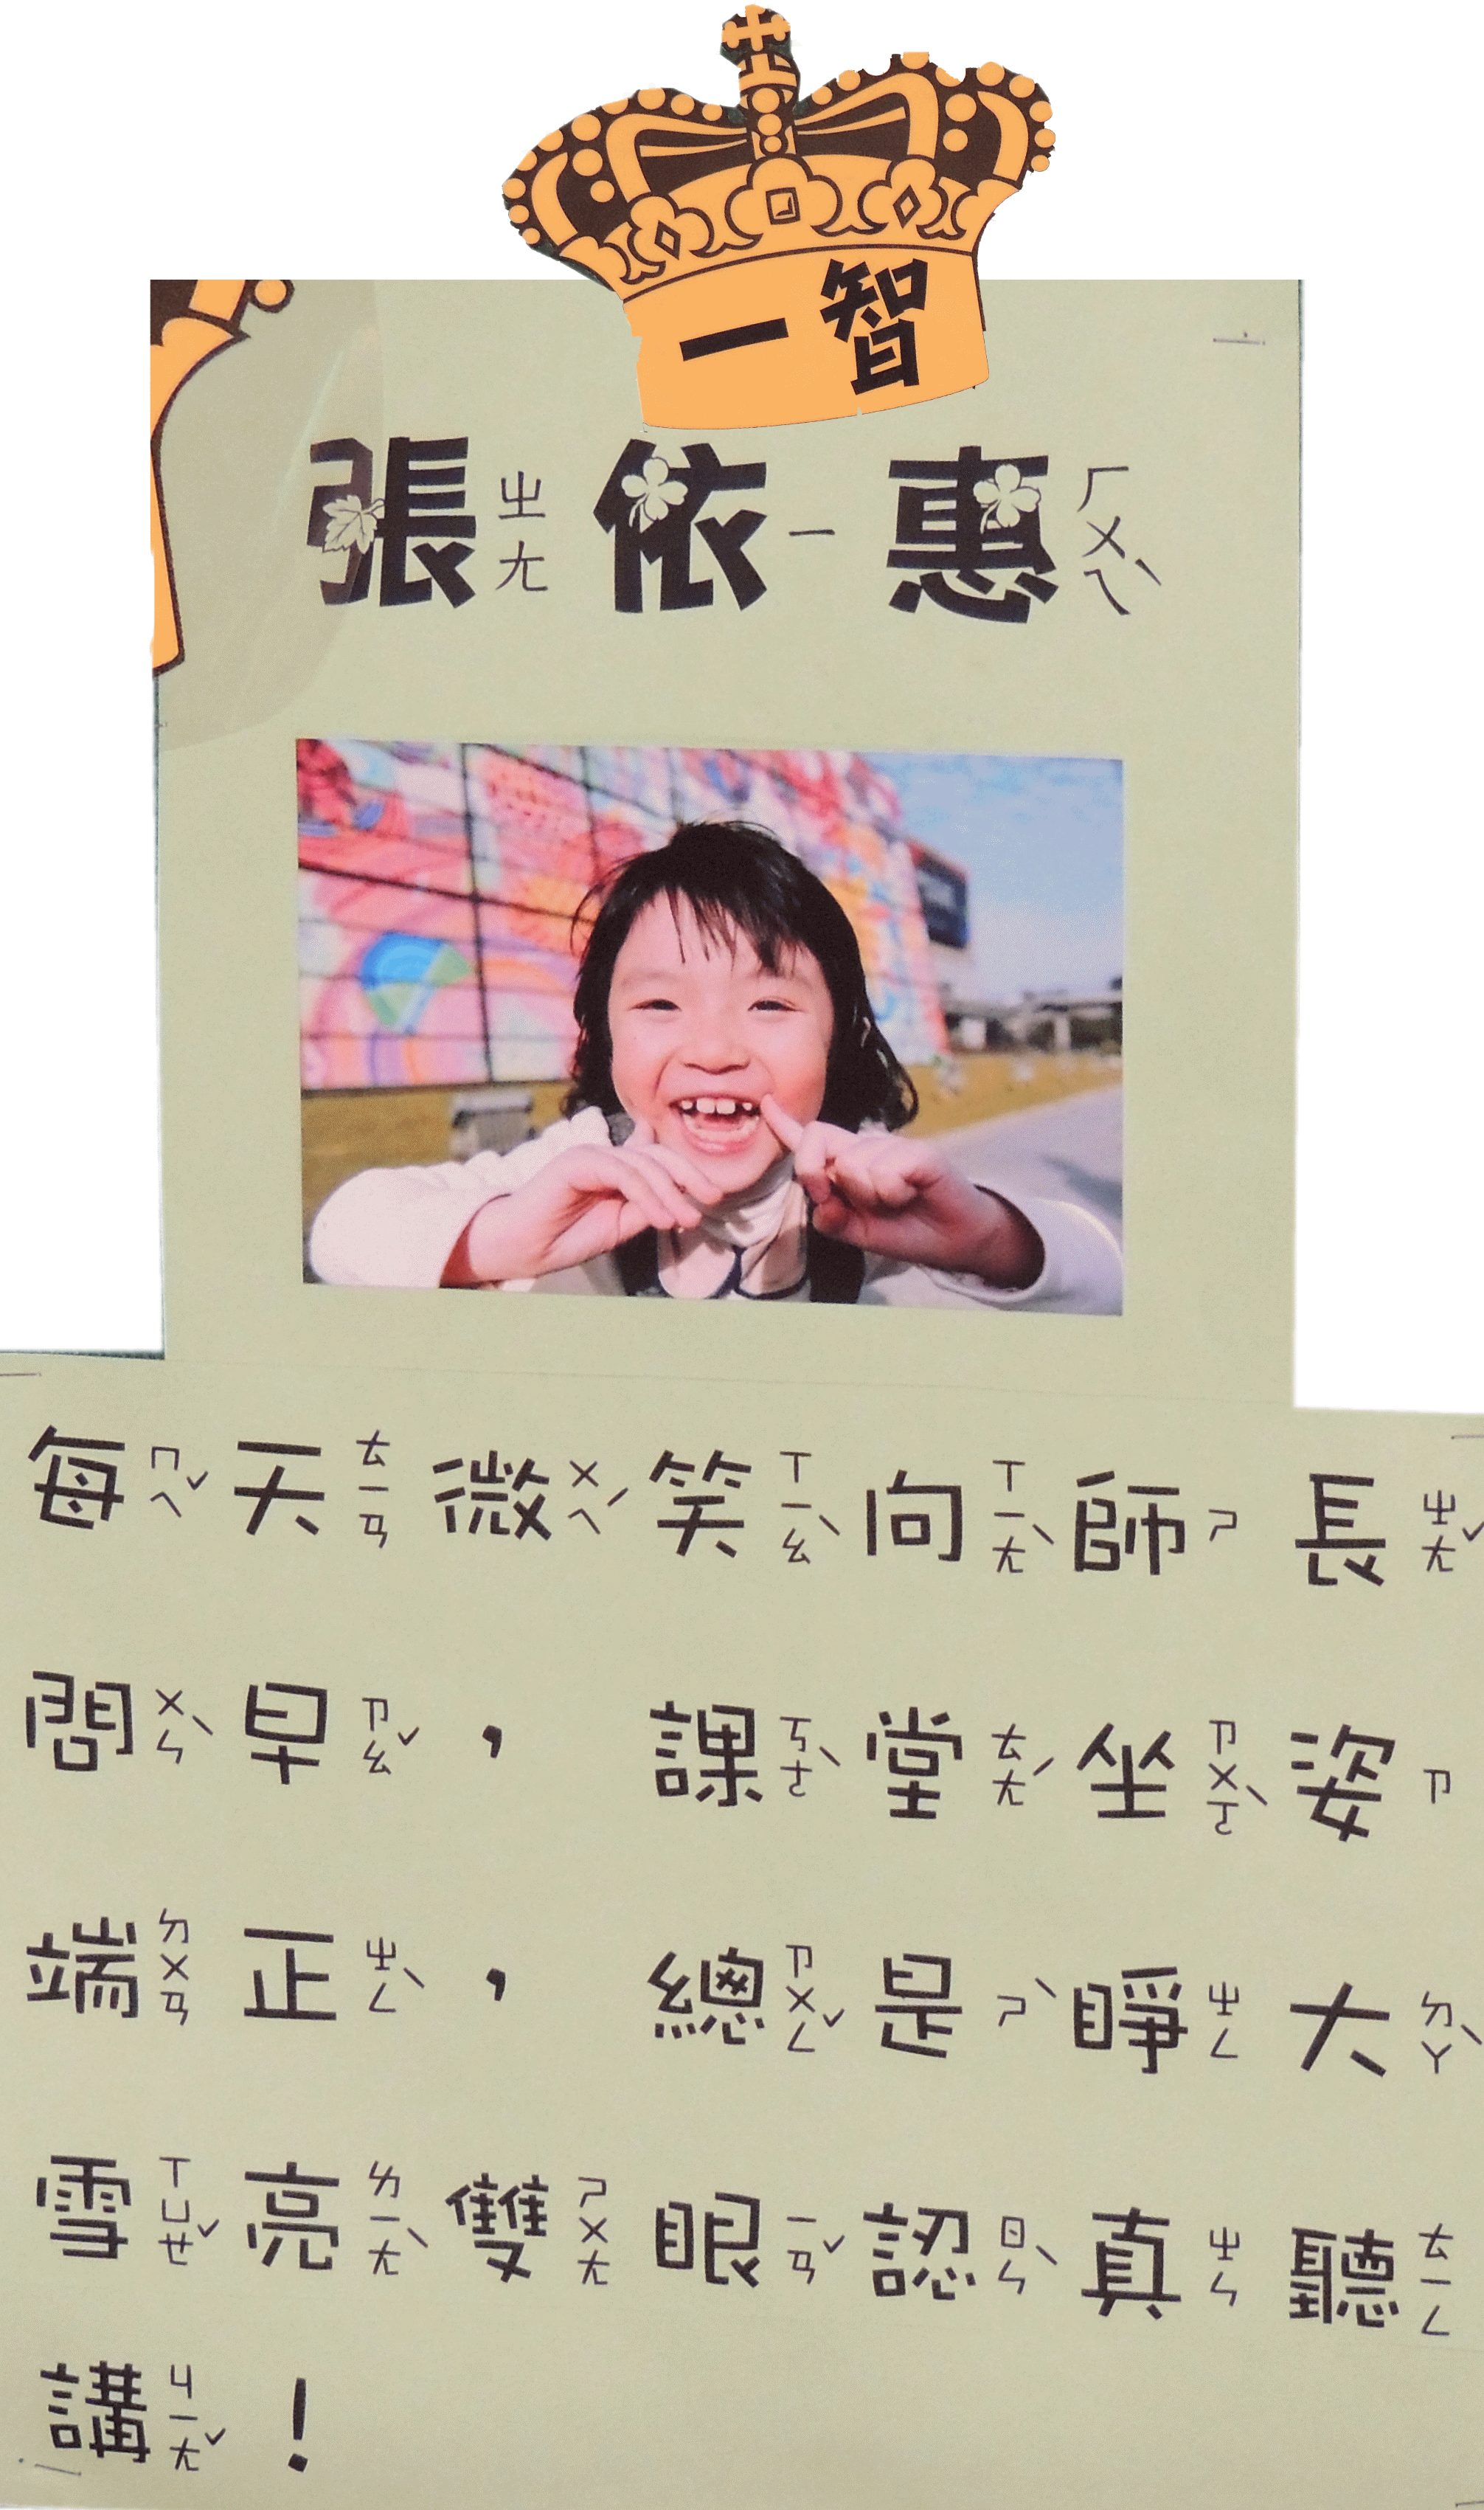 一智
張ㄓㄤ依ㄧ惠ㄏㄨㄟˋ
每ㄇㄟˇ天ㄊㄧㄢ微ㄨㄟˊ笑ㄒㄧㄠˋ向ㄒㄧㄤˋ師ㄕ長ㄓㄤˇ
問ㄨㄣˋ早ㄗㄠˇ，課ㄎㄜˋ堂ㄊㄤˊ坐ㄗㄨㄛˋ姿ㄗ
端ㄉㄨㄢ正ㄓㄥˋ，總ㄗㄨㄥˇ是ㄕˋ睜ㄓㄥ大ㄉㄚˋ
雪ㄒㄩㄝˇ亮ㄌㄧㄤˋ雙ㄕㄨㄤ眼ㄧㄢˇ認ㄖㄣˋ真ㄓㄣ聽ㄊㄧㄥ
講ㄐㄧㄤˇ！